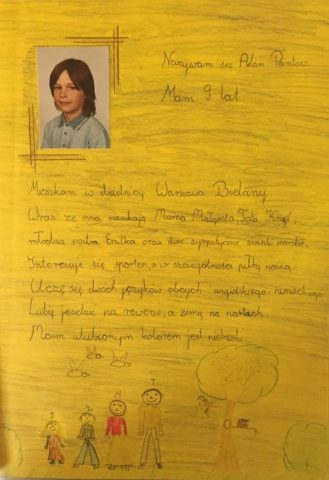 Nazywam się Adam
Mam 9 lat
Mieszkam w dzielnicy Warszawa Bielany.
Wraz ze mną mieszkają Mama Małgosia, Tata
młodsza siostra Emilka oraz dwie sympatyczne świnki morskie.
Interesuję się sportem, a w szczególności piłką nożną.
Uczę się dwóch języków obcych angielskiego i niemieckiego
Lubię jeździć na rowerze, a zimą na nartach
Moim ulubionym kolorem jest niebieski
S M T